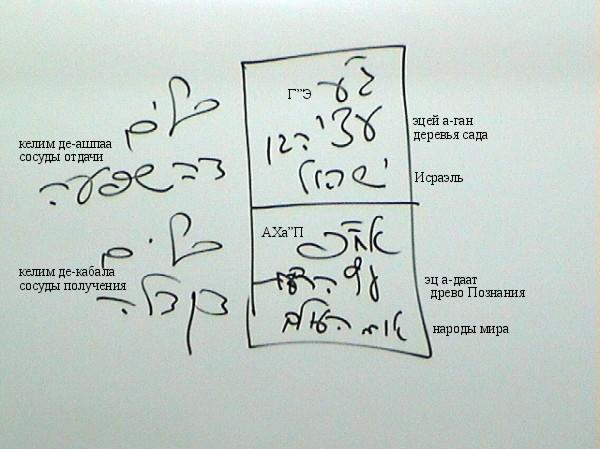 כלים
דהשפעה
келим де-ашпаа
сосуды отдачи
Г”Э
ג"ע
עצי הגן
ישראל
эцей а-ган
деревья сада
Исраэль
כלים
דקבלה
келим де-кабала
сосуды получения
АХа”П
אח"פ
עץ הדעת
העולם
эц а-даат
древо Познания
народы мира